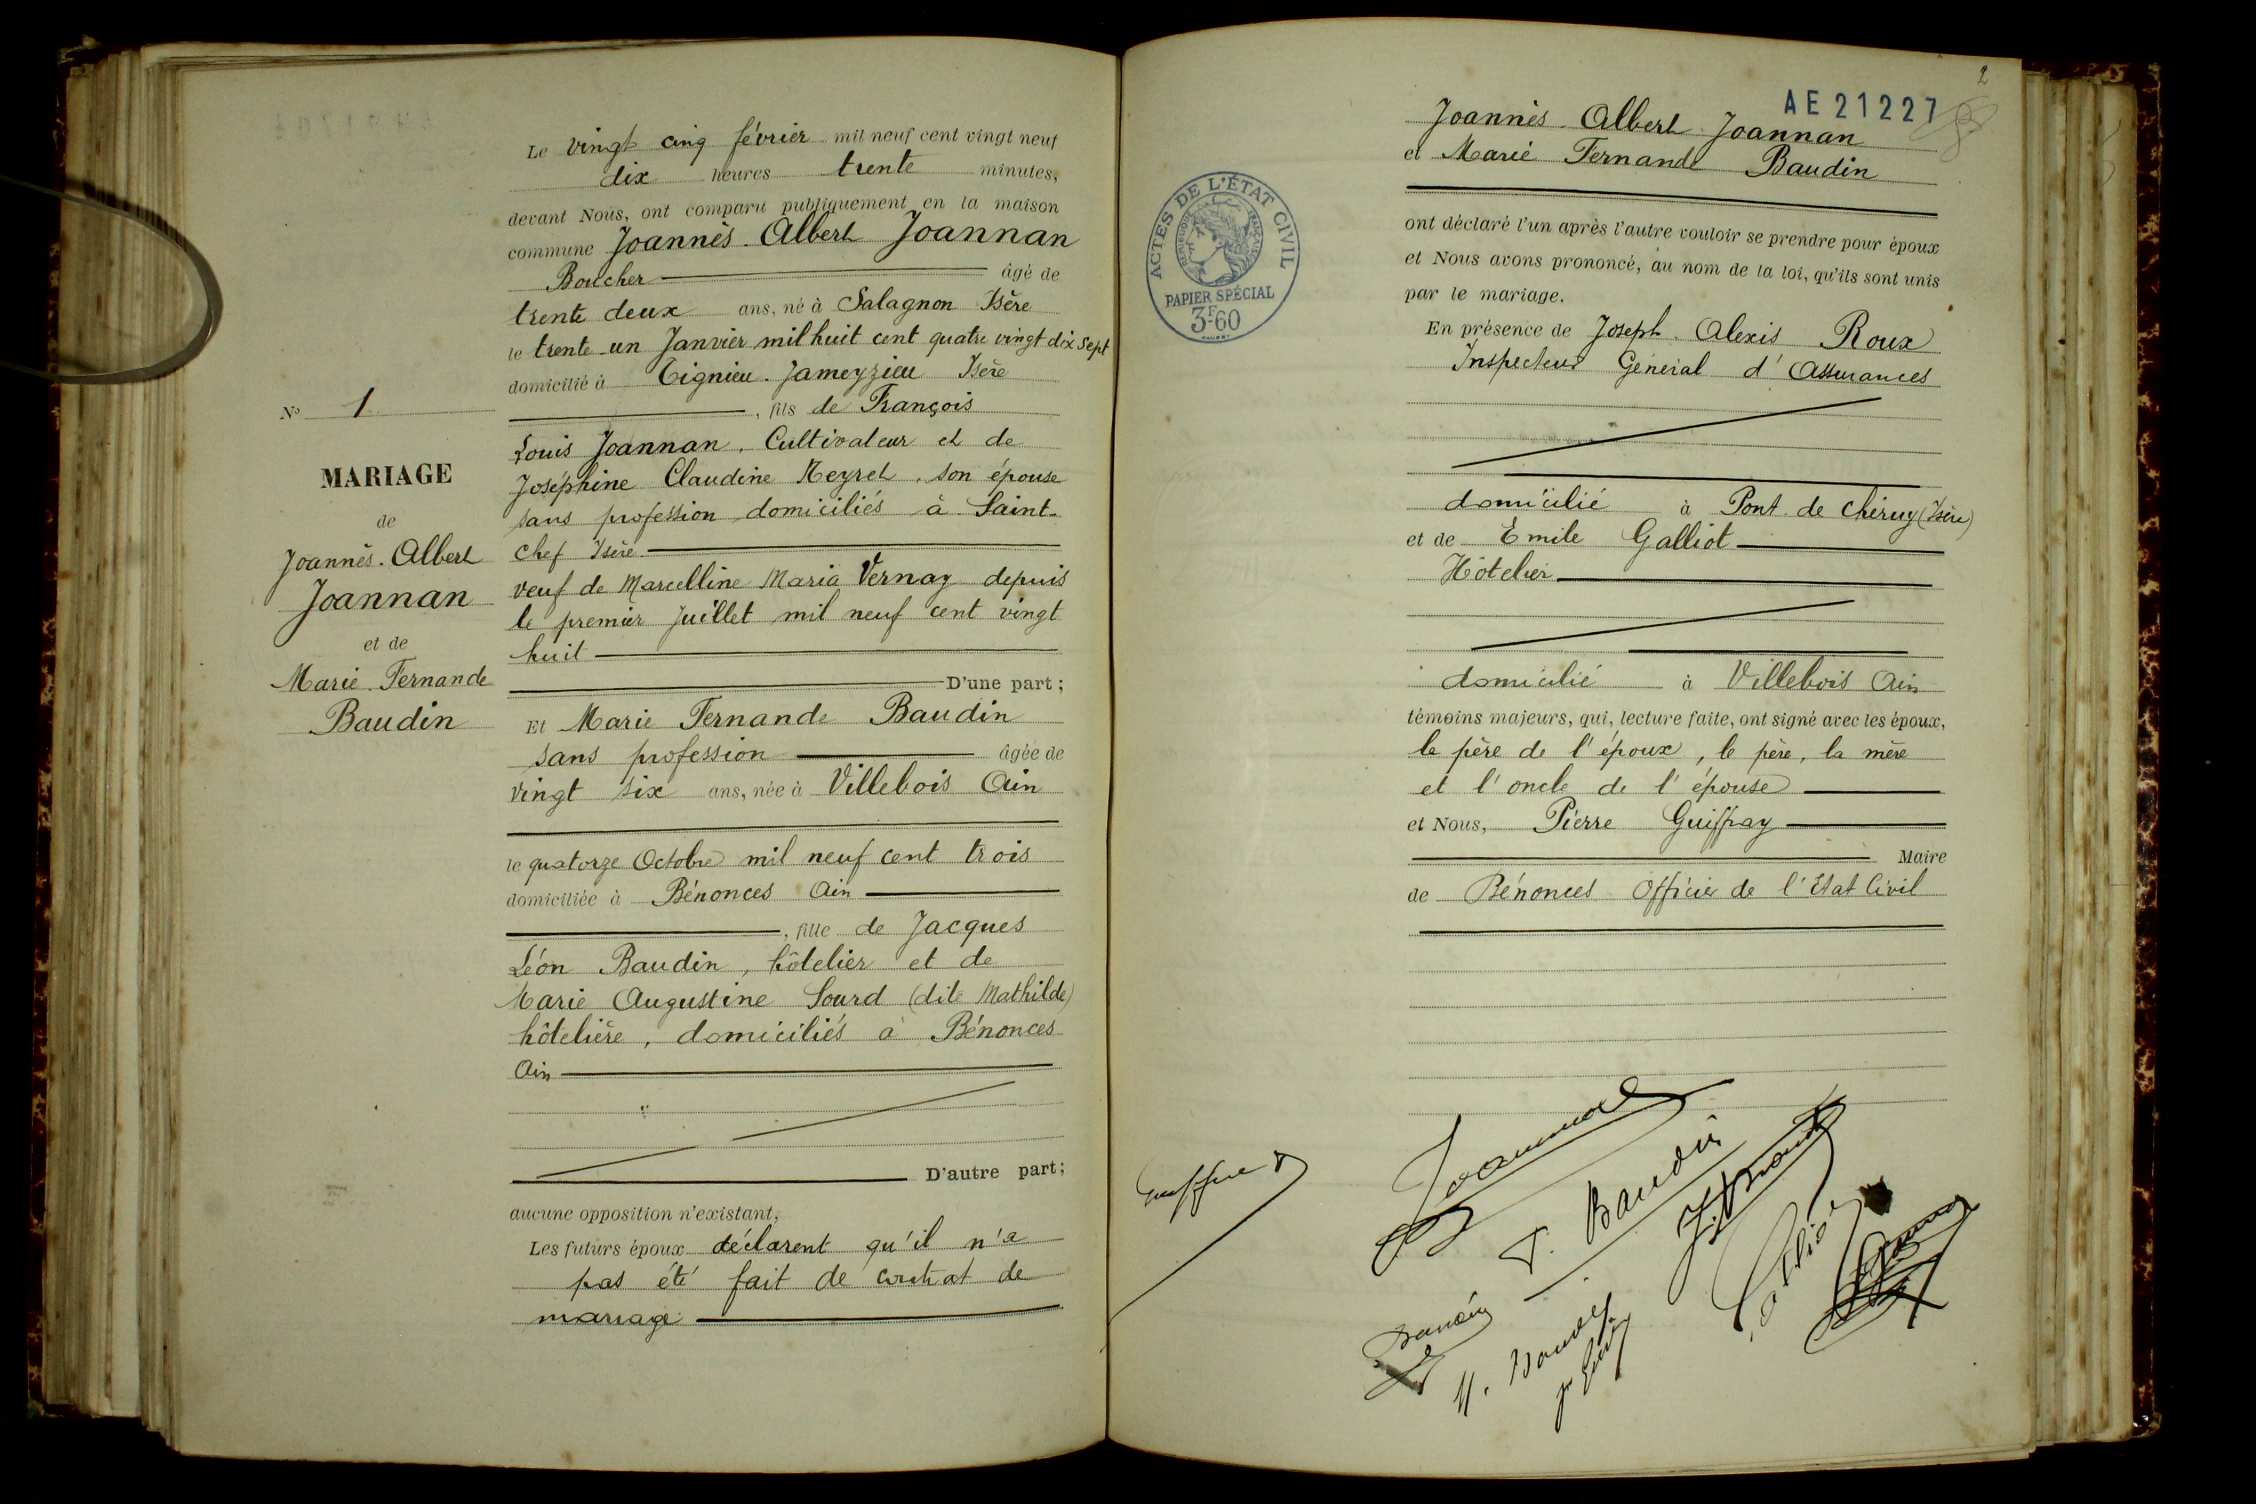 Le vingt cinq février mil neuf cent vingt neuf
dix heures trente minutes,
devant Nous, ont comparu publiquement en la maison
commune Joannès Albert Joannan
Boucher âgé de
trente deux ans, né à Salagnon Isère
le trente-un Janvier mil huit cent quatre vingt dix sept
domicilié à Tignieu-Jameyzieu Isère
, fils de François
Louis Joannan, Cultivateur et de
Joséphine Claudine Neyret, son épouse
sans profession domiciliés à Saint-
chef Isère
veuf de Marcelline Maria Vernay depuis
le premier Juillet mil neuf cent vingt
huit
D'une part;
Et Marie Fernande Baudin
sans profession âgée de
vingt six ans, née à Villebois Ain
le quatorze Octobre mil neuf cent trois
domiciliée à Bénonces Ain
, fille de Jacques
Léon Baudin, hôtelier et de
Marie Augustine Sourd (dite Mathilde)
hôtelière, domiciliés à Bénonces
Ain
D'autre part;
aucune opposition n'existant,
Les futurs époux déclarent qu'il n'a
pas été fait de contrat de
mariage
No 1
MARIAGE
de
Joannès Albert
Joannan
et de
Marie Fernande
Baudin
2
AE 21227
Joannès Albert Joannan
et Marie Fernande Baudin
ont déclaré l'un après l'autre vouloir se prendre pour époux
et Nous avons prononcé, au nom de la loi, qu'ils sont unis
par le mariage.
En présence de Joseph Alexis Roux
Inspecteur Général d'Assurances
domicilié à Pont de Chéruy (Isère)
et de Emile Galliot
Hôtelier
domicilié à Villebois Ain
témoins majeurs, qui, lecture faite, ont signé avec les époux,
le père de l'époux, le père, la mère
et l'oncle de l'épouse
et Nous, Pierre Guiffray
Maire
de Bénonces Officier de l'Etat Civil
ACTES DE L'ÉTAT CIVIL
RÉPUBLIQUE FRANÇAISE
PAPIER SPÉCIAL
3F60
Joannan
F. Baudin
Baudin
M. Baudin